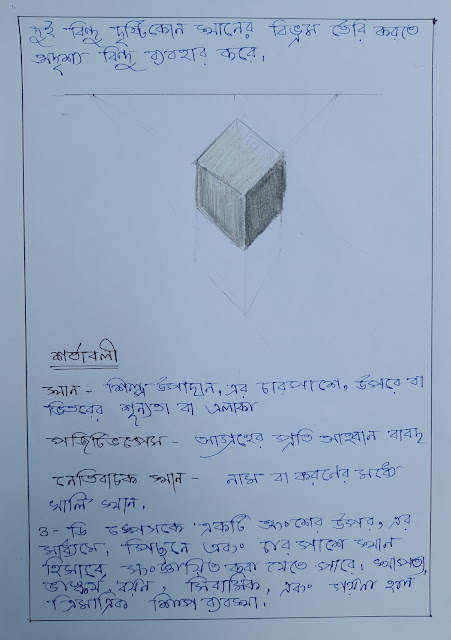 দুই বিন্দু দৃষ্টিকোন স্থানের বিভ্রম তৈরি করতে
অদৃশ্য বিন্দু ব্যবহার করে।
শর্তাবলী
স্থান - শিল্প উপাদান, এর চারপাশে, উপরে বা
ভিতরের শূন্যতা বা এলাকা
পজিটিভস্পেস - আগ্রহের প্রতি আহবান বাবদ
নেতিবাচক স্থান - নাস বা করনের মধ্যে
খালি স্থান.
3-ডি স্পেসকে একটি অংশের উপর, এর
মাধ্যমে, পিছনে এবং চারপাশে স্থান
হিসাবে সংজ্ঞায়িত করা যেতে পারে। স্থাপত্য,
ভাস্কর্য, বয়ন, সিরামিক, এবং গয়না হল
ত্রিমাত্রিক শিল্প ব্যবস্থা.